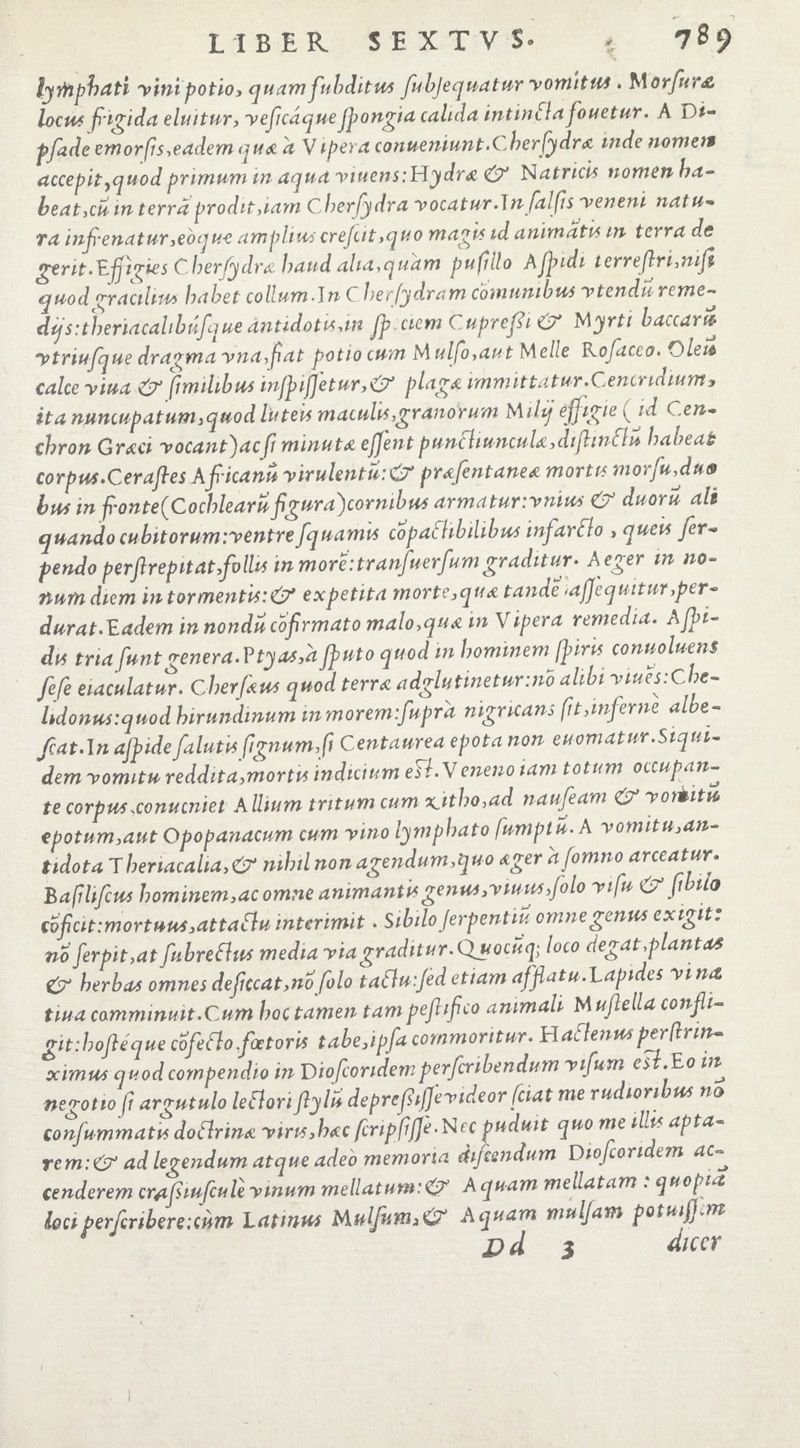 LIBER SEXTVS. 789
lymphati vini potio, quam subditus subsequatur vomitus. Morsuræ
locus frigida eluitur, vesicáque spongia calida intincta fouetur. A Di-
psade emorsis, eadem quæ à Vipera conueniunt. Chersydræ inde nomen
accepit, quod primum in aqua viuens: Hydræ & Natricis nomen ha-
beat, cũ in terrã prodit, iam Chersydra vocatur. In salsis veneni natu-
ra infrenatur, eòque amplius crescit, quo magis id animãtis in terra de
gerit. Effigies Chersydræ haud alia, quàm pusillo Aspidi terrestri, nisi
quod gracilius habet collum. In Chersydram cõmunibus vtendũ reme-
dijs: theriacalibúsque antidotis, in speciem Cupressi & Myrti baccarũ
vtriusque dragma vna, fiat potio cum Mulso, aut Melle Rosaceo. Oleũ
calce viua & similibus inspissetur, & plagæ immittatur. Cencridium,
ita nuncupatum, quod luteis maculis, granorum Milij effigie (id Cen-
chron Græci vocant) ac si minutæ essent punctiunculæ, distinctũ habeat
corpus. Cerastes Africanũ virulentũ: & præsentaneæ mortis morsu, duo
bus in fronte (Cochlearũ figura) cornibus armatur: vnius & duorũ ali
quando cubitorum: ventre squamis cõpactibilibus infarcto, queis ser-
pendo perstrepitat, follis in morẽ: transuersum graditur. Aeger in no-
num diem in tormentis: & expetita morte, quæ tandẽ assequitur, per-
durat. Eadem in nondũ cõfirmato malo, quæ in Vipera remedia. Aspi-
dis tria sunt genera. Ptyas, à sputo quod in hominem spiris conuoluens
sese eiaculatur. Chersæus quod terræ adglutinetur: nõ alibi viuẽs: Che-
lidonus: quod hirundinum in morem: suprà nigricans sit, infernè albe-
scat. In aspide salutis signum, si Centaurea epota non euomatur. Siqui-
dem vomitu reddita, mortis indicium est. Veneno iam totum occupan-
te corpus, conueniet Allium tritum cum zitho, ad nauseam & vomitũ
epotum, aut Opopanacum cum vino lymphato sumptũ. A vomitu, an-
tidota Theriacalia, & nihil non agendum, quo æger à somno arceatur.
Basiliscus hominem, ac omne animantis genus, viuus, solo visu & sibilo
cõficit: mortuus, attactu interimit. Sibilo serpentiũ omne genus exigit:
nõ serpit, at subrectus media via graditur. Quocũq; loco degat, plantas
& herbas omnes desiccat, nõ solo tactu: sed etiam afflatu. Lapides vi na
tiua comminuit. Cum hoc tamen tam pestifico animali Mustella confli-
git: hostéque cõfecto fœtoris tabe, ipsa commoritur. Hactenus perstrin-
ximus quod compendio in Dioscoridem perscribendum visum est. Eo in
negotio si argutulo lectori stylũ depressisse videor sciat me rudioribus nõ
consummatis doctrinæ viris, hæc scripsisse. Nec puduit quo me illis apta-
rem: & ad legendum atque adeò memoria discendum Dioscoridem ac-
cenderem crassiusculè vinum mellatum: & Aquam mellatam: quopiã
loci perscribere: cùm Latinus Mulsum, & Aquam mulsam potuissem
Dd 3 dicer